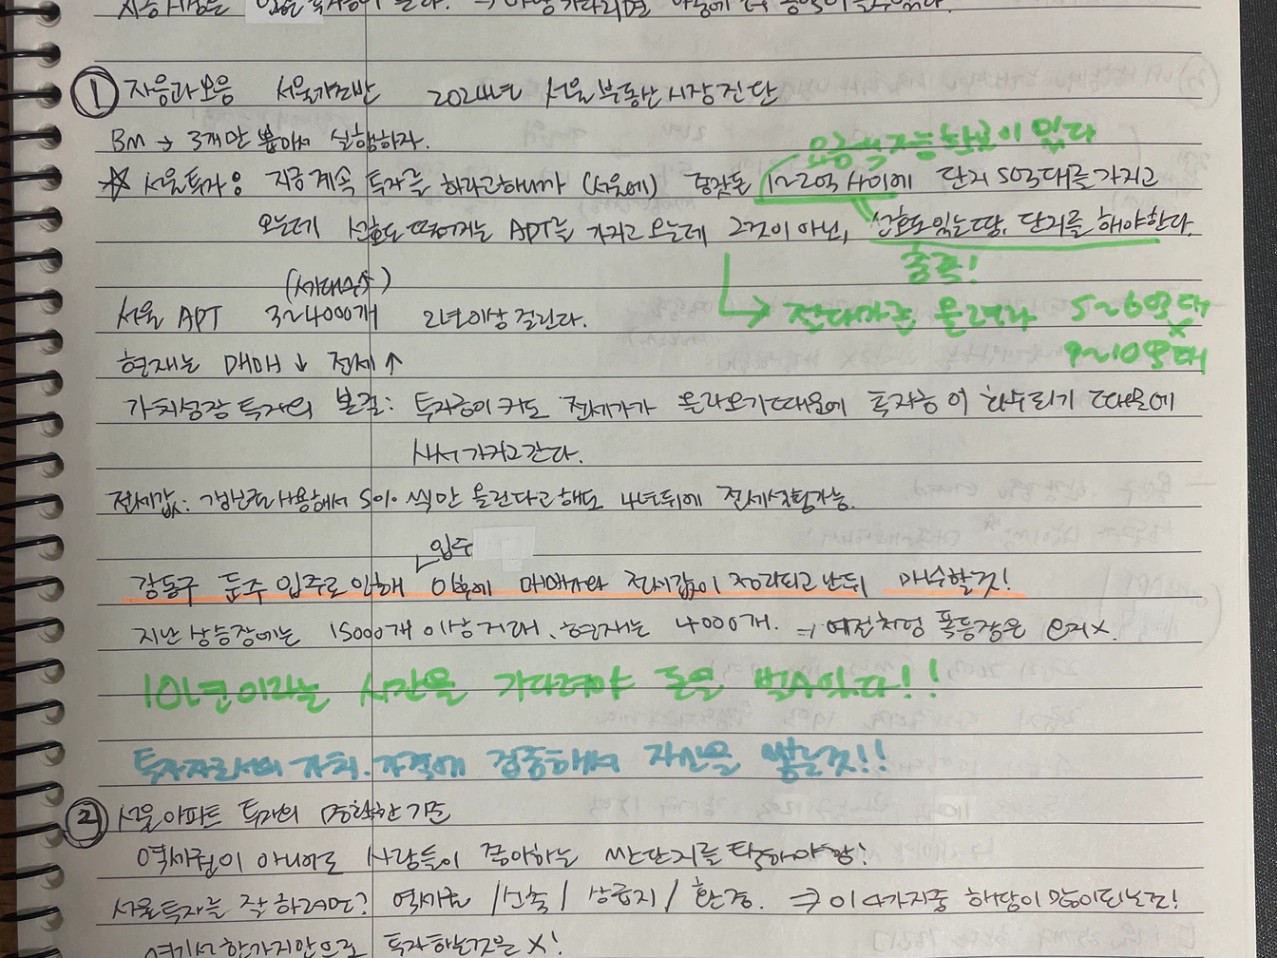 ① 자음과모음 서울기초반 2024년 서울부동산시장진단
BM → 3개만 뽑아서 실행하자.
☆ 서울투자: 지금 계속 투자를 하라고하니까 (서울에) 종잣돈 1~2억 사이에 단지 50억대를 가지고
오는데 선호도 떨어지는 APT를 가지고 오는데 그것이 아닌, 선호도있는땅, 단지를 해야한다.
가능한곳이 있다
중복!
→ 전대가를 올려라 5~6억대
×
9~10억대
(세대수)
서울 APT 3~4000개 2년이상 걸린다.
현재는 매매↓ 전세↑
가치성장 투자의 본질: 투자금이 커도 전세가가 올라오기때문에 투자금이 한수되기 때문에
사서 가지고간다.
전세값: 갱신권사용해서 5%씩만 올린다고해도 4년뒤에 전세상승가능.
입주
강동구 둔주 입주로 인해 이후에 매매가와 전세값이 정리되고난뒤 매수할것!
지난 상승장에는 15000개 이상거래, 현재는 4000개. → 예전처럼 폭등장은 의지x.
10년이라는 시간을 기다려야 돈을 벌수있다!!
투자자로서의 가치.가격에 집중해서 자산을 쌓을것!!
② 서울아파트 투자의 명확한기준
역세권이 아니라도 사람들이 좋아하는 싼단지를 투자해야함!
서울투자를 잘 하려면? 역세권 / 신축 / 상급지 / 환경. ⇒ 이 4가지중 해당이 많이되는곳!
여기서한가지만으로 투자하는것은 X!